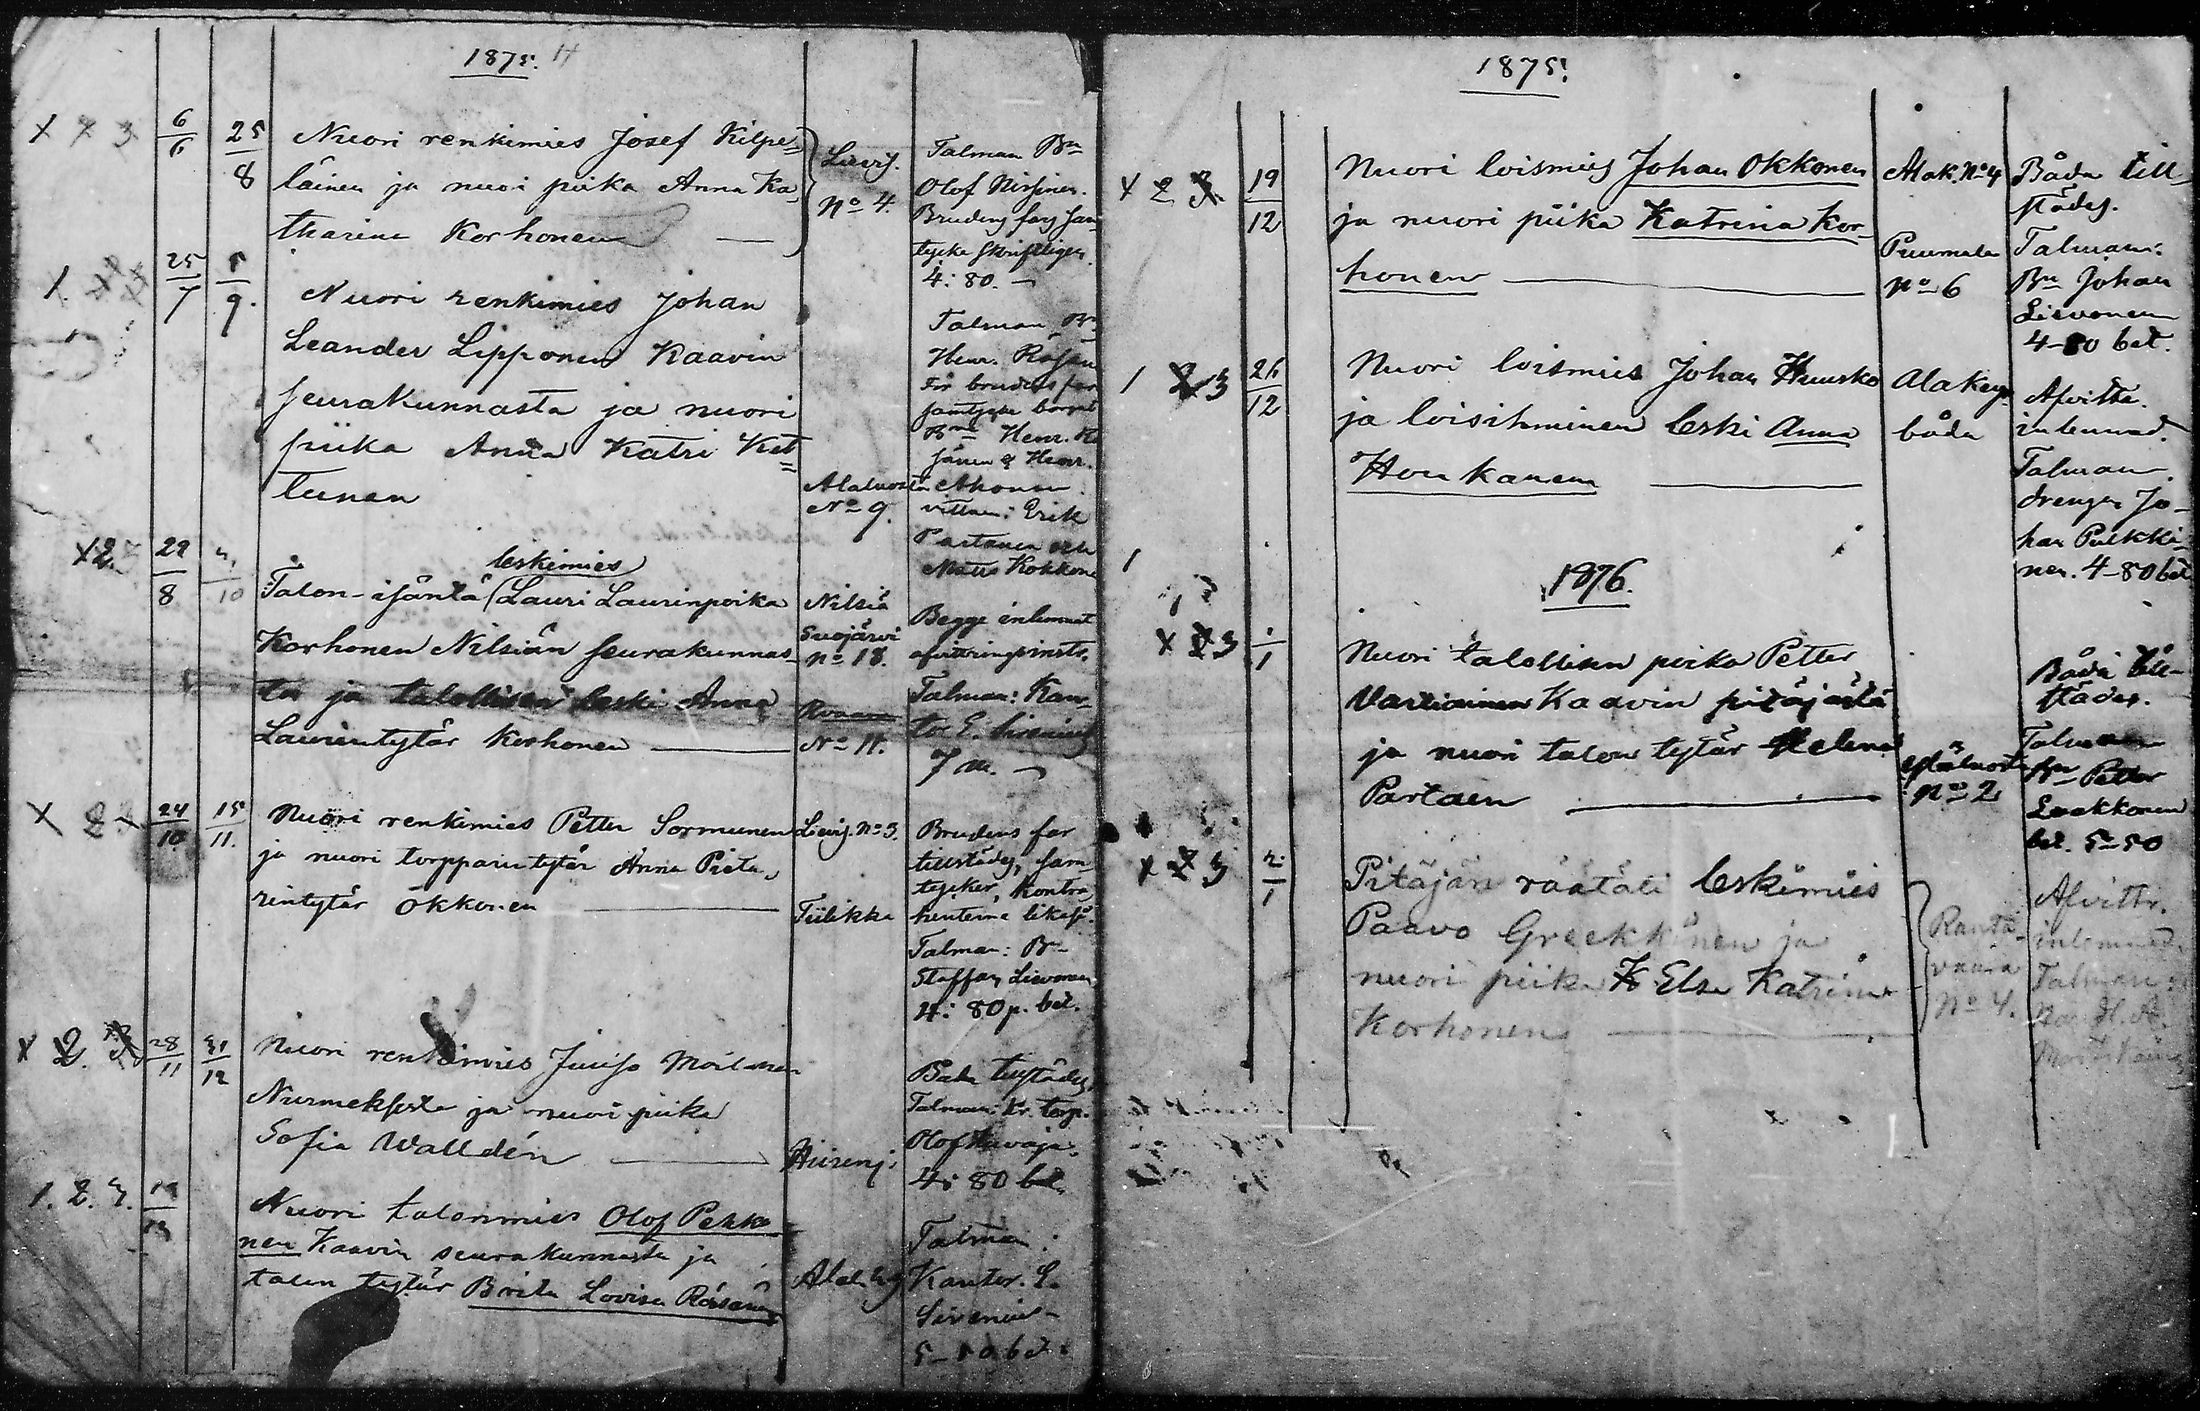 1875.
X 2 3
6/6
25/8
Nuori renkimies Josef Kilpe=
läinen ja nuori piika Anna Ka
tharina Korhonen
Lievis.
No 4.
Talman Bn
Olof Mirsinen.
Brudens fars sam
tycke skriftligen.
4: 80.
25/7
5/9.
Nuori renkimies Johan
Leander Lipponen Kaavin
seurakunnasta ja nuori
piika Anna Katri Ket=
tunen
Alaluosta
No 9.
Talman Bn
Henr. Räsän
För brudens far
samtycke borgat
Bne Henr. Rä
sänen & Henr.
Ahonen
vittna: Erik
Partanen och
Matts Kokkone
29/8
10
leskimies
Talon-isäntä (Lauri Laurinpoika
Korhonen Nilsiän seurakunnas-
ta ja talollisen leski Anna
Laurintytär Korhonen
Nilsiä
Suojärvi
No 18.
No 11.
Begge inlemnat
afvittringsinstr.
Talman: Kan-
tor E. Sirenius
7 m.
24/10
15/11.
Nuori renkimies Petter Sormunen
ja nuori torpparintytär Anna Pieta
rintytär Okkonen
Lievis. No 3.
Tiilikka
Brudens far
tillstädes, sam
tycker, Kontra
henterna likaså.
Talman: Bn
Staffan Lievonen
4: 80 p. bet.
X 2.
28/11
31/12
Nuori renkimies Juuso Moilanen
Nurmeksesta ja nuori piika
Sofia Walldén
Hiirenj.
Båda tillstädes,
Talman: Kr. torp.
Olof Kuvaja.
4: 80 bet.
1. 2. 3.
Nuori talonmies Olof Pekka
nen Kaavin seurakunnasta ja
talon tytär Brita Lovisa Räsänen
Talman:
Kantor. E.
Sirenius
5-50 bet.
1875.
X 2 3
19/12
Nuori loismies Johan Okkonen
ja nuori piika Katrina Kor-
honen
Alak. No 4
Puumala
No 6
Båda till-
städes.
Talman:
Bn Johan
Lievonen
4-80 bet.
1 2 3
26/12
Nuori loismies Johan Huusko
ja loisihminen leski Anna
Houkanen
Alakeys
båda
Afvittr.
inlemnad.
Talman
drengen Jo-
han Pulkki-
nen. 4-80 bet
1
1876.
X 2 3
1/1
Nuori talollisen poika Petter
Vartiainen Kaavin pitäjästä
ja nuori talon tytär Helena
Partaen
Yläluosta
No 2
Båda till-
städes.
Talman
Bn Petter
Laakkonen
bet. 5-50
X 2 3
2/1
Pitäjän räätäli leskimies
Paavo Greekkönen ja
nuori piika Elsa Katrina
Korhonen
Ranta-
vaara
No 4.
Afvittr.
inlemnad.
Talman: